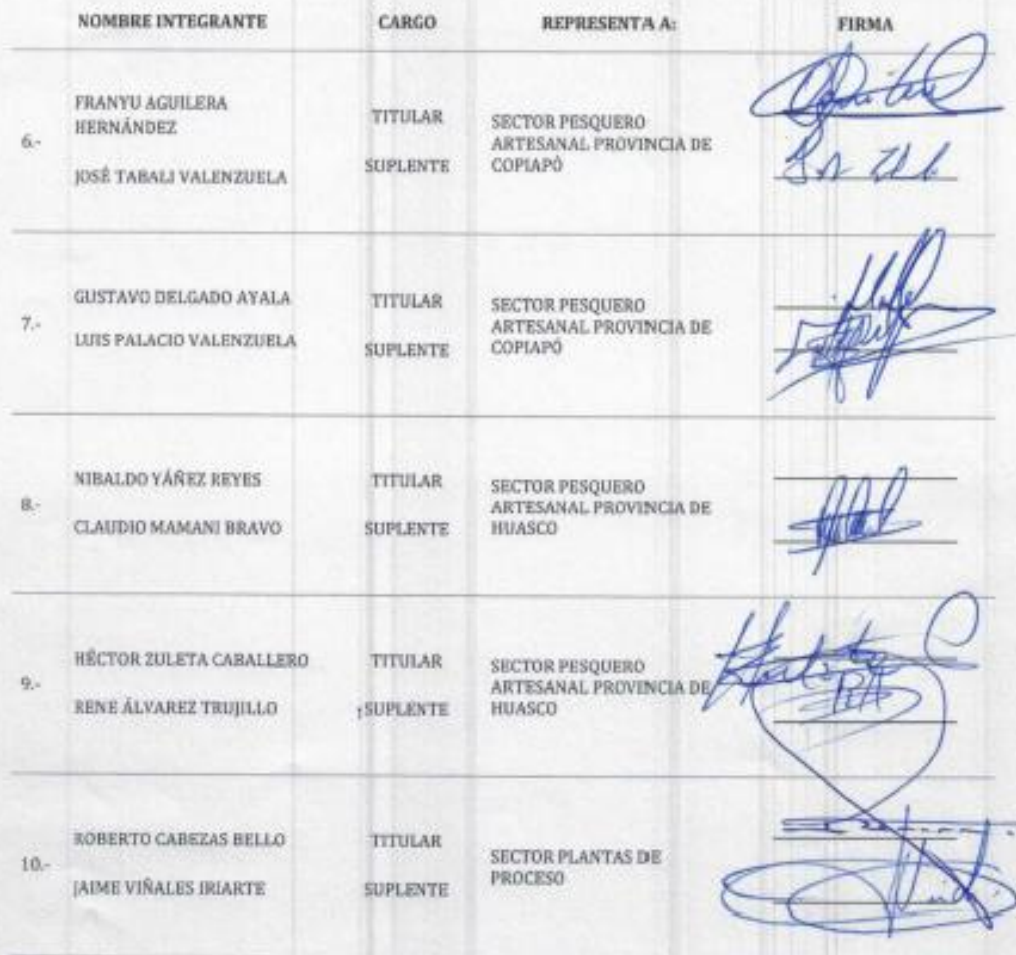 NOMBRE INTEGRANTE CARGO REPRESENTA A: FIRMA
6.-
FRANYU AGUILERA
HERNÁNDEZ
TITULAR
JOSÉ TABALI VALENZUELA
SUPLENTE
SECTOR PESQUERO
ARTESANAL PROVINCIA DE
COPIAPÓ
7.-
GUSTAVO DELGADO AYALA
TITULAR
LUIS PALACIO VALENZUELA
SUPLENTE
SECTOR PESQUERO
ARTESANAL PROVINCIA DE
COPIAPÓ
8.-
NIBALDO YÁÑEZ REYES
TITULAR
CLAUDIO MAMANI BRAVO
SUPLENTE
SECTOR PESQUERO
ARTESANAL PROVINCIA DE
HUASCO
9.-
HÉCTOR ZULETA CABALLERO
TITULAR
RENE ÁLVAREZ TRUJILLO
SUPLENTE
SECTOR PESQUERO
ARTESANAL PROVINCIA DE
HUASCO
10.-
ROBERTO CABEZAS BELLO
TITULAR
JAIME VIÑALES IRIARTE
SUPLENTE
SECTOR PLANTAS DE
PROCESO